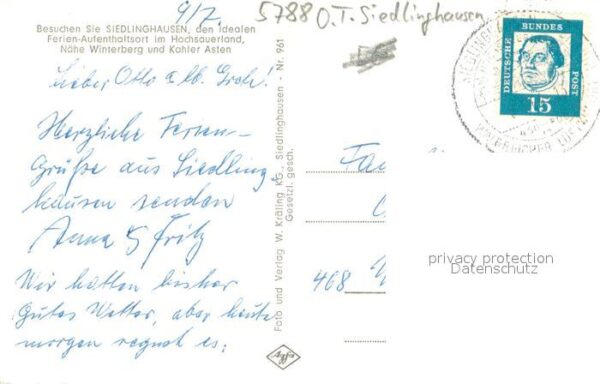 9/7.
5788 O.T. Siedlinghausen
Besuchen Sie SIEDLINGHAUSEN, den idealen
Ferien-Aufenthaltsort im Hochsauerland,
Nähe Winterberg und Kahler Asten
Lieber Otto u. lb. Grete!
Herzliche Ferien-
Grüße aus Siedling-
hausen senden
Anna & Fritz
Wir hatten bisher
Gutes Wetter, aber heute
morgen regnet es.
Foto und Verlag W. Kräling KG., Siedlinghausen - Nr. 961
Gesetzl. gesch.
Agfa
DEUTSCHE BUNDES POST
15
Fa
468
privacy protection
Datenschutz